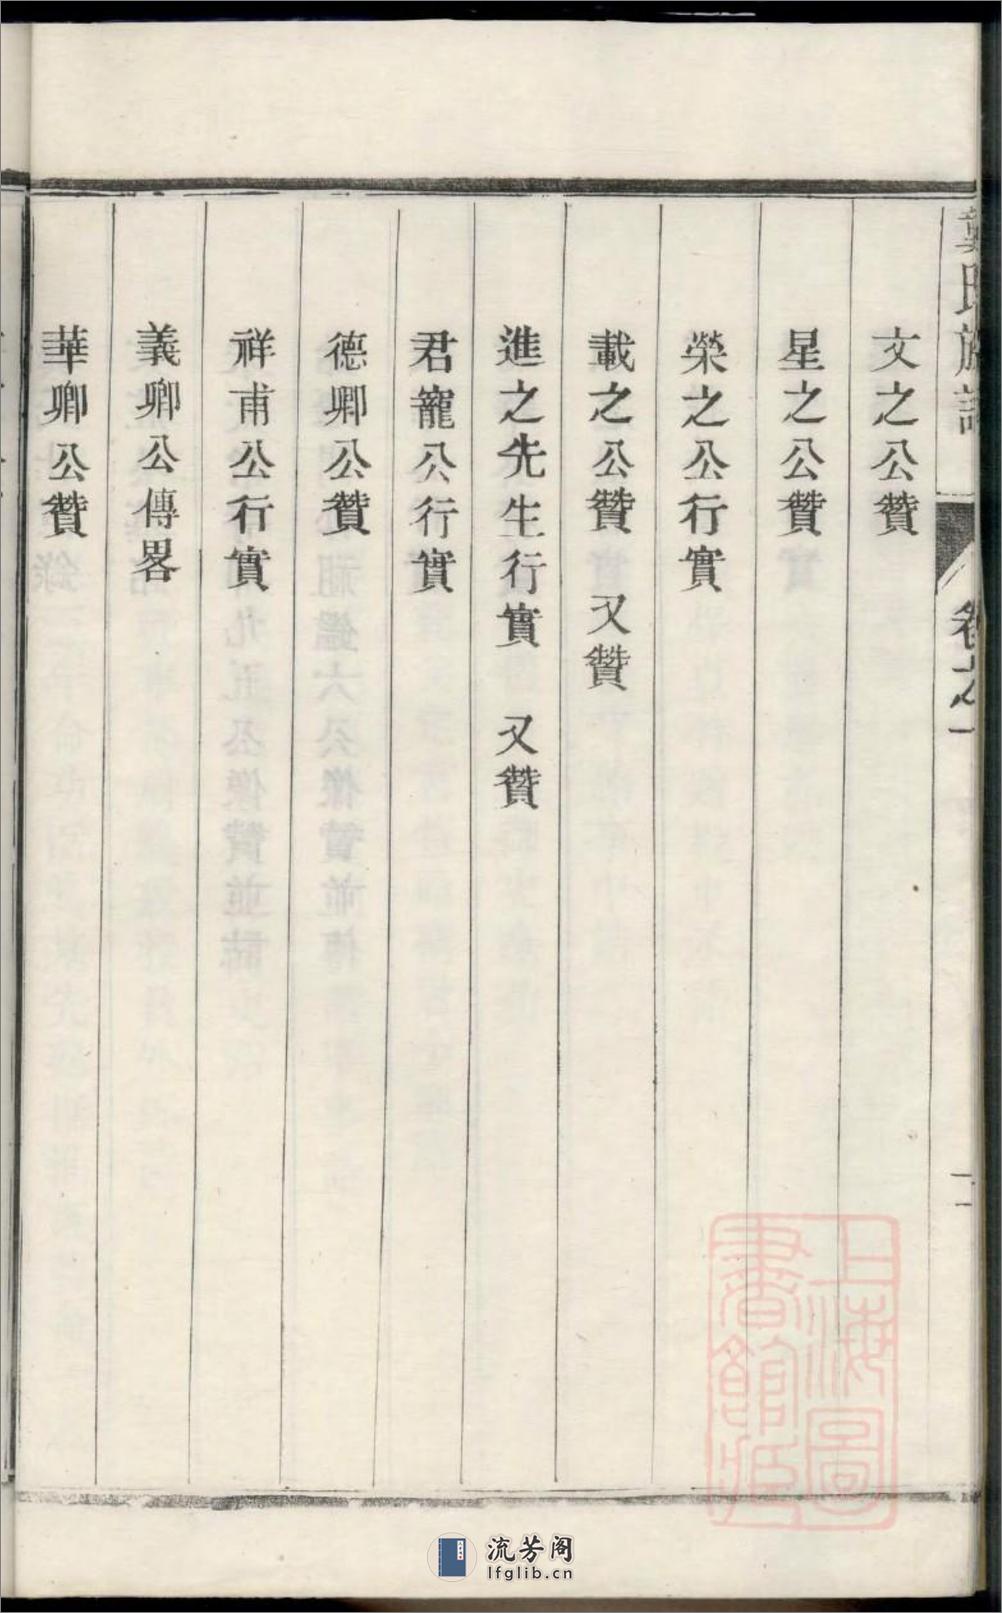 龔氏族譜
卷之一
二
文之公贊
星之公贊
榮之公行實
載之公贊 又贊
進之先生行實 又贊
君寵公行實
德卿公贊
祥甫公行實
義卿公傳畧
華卿公贊
上海圖
書館藏
流芳阁
lfglib.cn